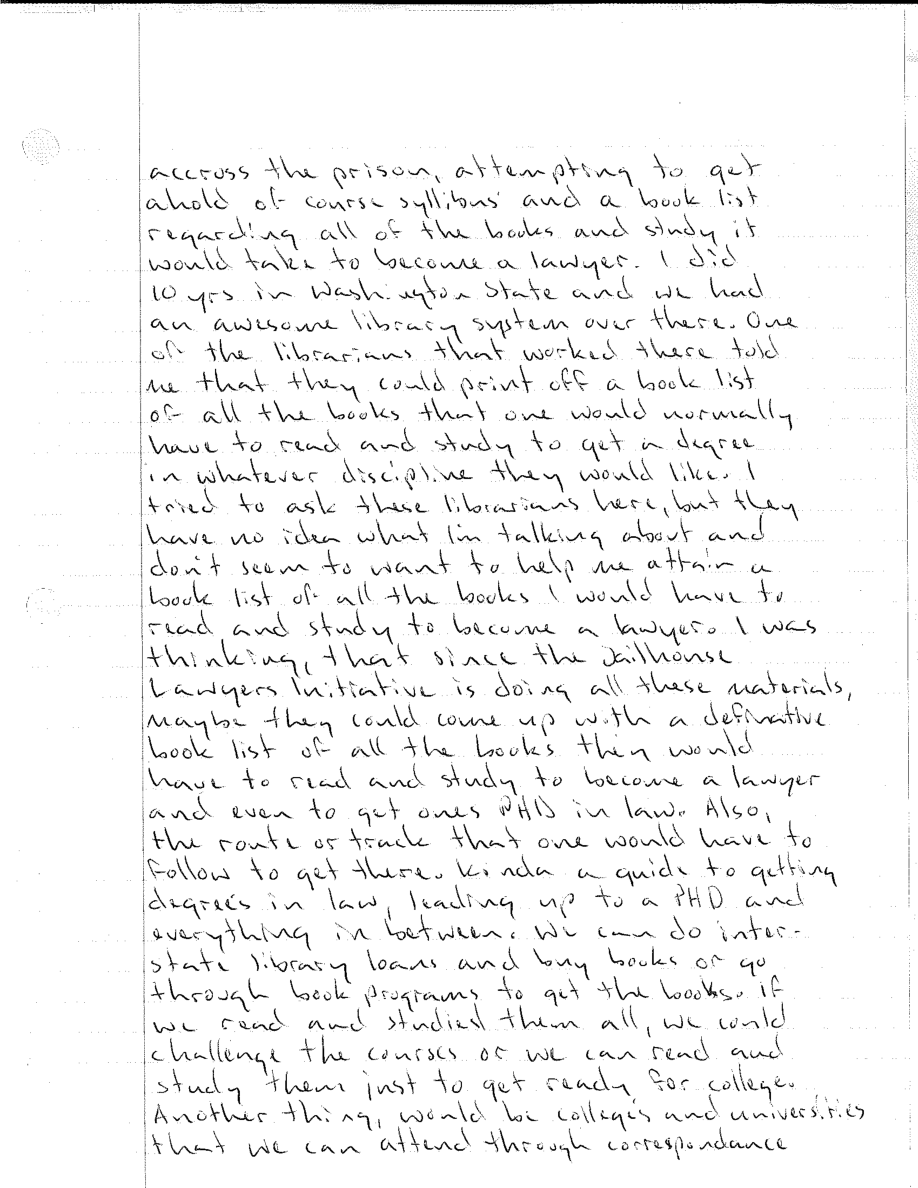 accross the prison, attempting to get
ahold of course syllibus' and a book list
regarding all of the books and study it
would take to become a lawyer. I did
10 yrs in Washington State and we had
an awesome library system over there. One
of the librarians that worked there told
me that they could print off a book list
of all the books that one would normally
have to read and study to get a degree
in whatever discipline they would like. I
tried to ask these librarians here, but they
have no idea what I'm talking about and
don't seem to want to help me attain a
book list of all the books I would have to
read and study to become a lawyer. I was
thinking, that since the Jailhouse
Lawyers Initiative is doing all these materials,
maybe they could come up with a definative
book list of all the books they would
have to read and study to become a lawyer
and even to get ones PHD in law. Also,
the route or track that one would have to
follow to get there. kinda a guide to getting
degree's in law, leading up to a PHD and
everything in between. We can do inter-
state library loans and buy books or go
through book programs to get the books. if
we read and studied them all, we could
challenge the courses or we can read and
study them just to get ready for college.
Another thing, would be college's and universities
that we can attend through correspondance